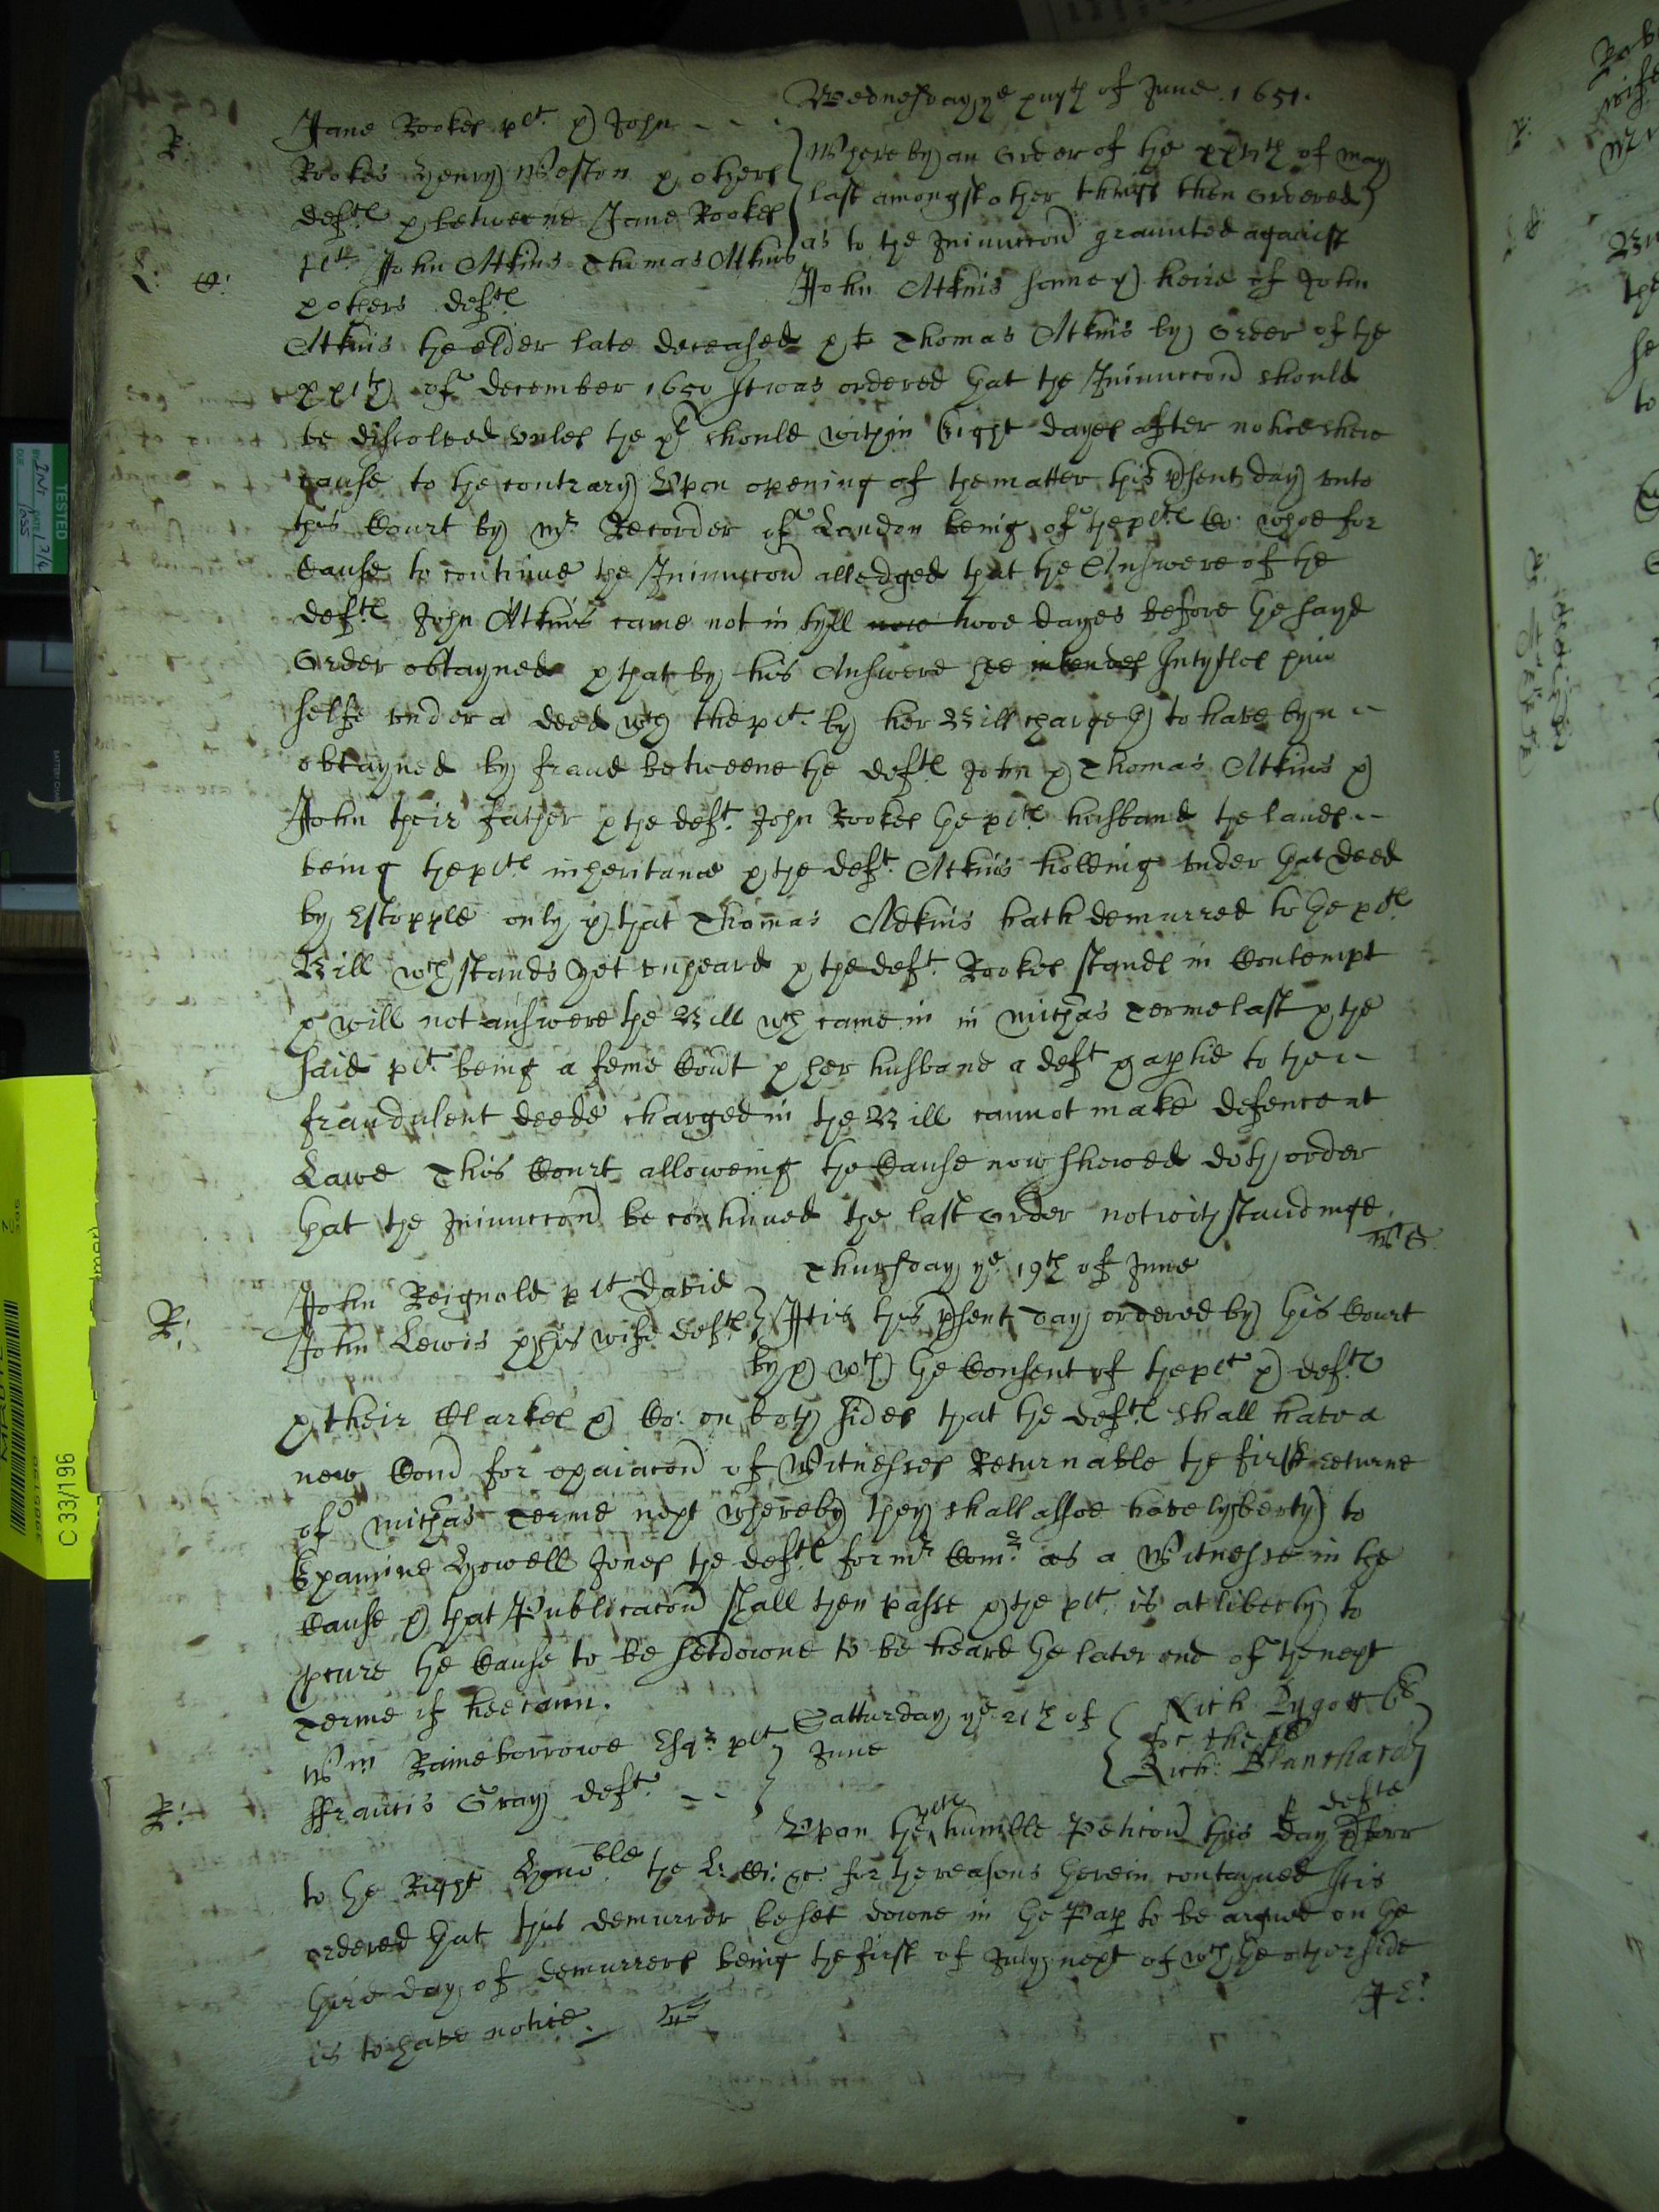 Wednesday ye xviijth of June 1651.
R: Jane Rookes plt. & John - - -
Rookes Henry Weston & others
deftes & betweene Jane Rookes
plte John Atkins Thomas Atkins
& others deftes
Whereby an Order of the xxixth of may
last amongst other things then Ordered
as to the Iniuuccon graunted against
John Atkins sonne & heire of John
Atkins the elder late deceased & to Thomas Atkins by Order of the
xxth of December 1650 It was ordered that the Iniunccon should
be dissolved Vnles the plt should within Eight dayes after notice shew
cause to the contrary Vpon opening of the matter this psent day vnto
this Court by mr Recorder of London being of the pltes Co: whoe for
Cause to continue the Iniunccon alledged that the Answere of the
deftes John Atkins came not in tyll now twoe dayes before the sayd
Order obtayned & that by his Answere hee intendes Intytles him
selfe vnder a deed wch the plt. by her Bill chargeth to have byn --
obtayned by fraud betweene the deftes John & Thomas Atkins &
John their father & the deft. John Rookes the pltes husband the landes --
being the pltes inheritance & the deft. Atkins holding vnder that deed
by Estopple only & that Thomas Adkins hath demurred to the pltes
Bill wch stands yet vnheard & the deft. Rookes standes in Contempt
& will not answere the Bill wch came in in michas Terme last & the
said plt. being a feme Covt & her husband a deft & partie to the --
fraudulent deede charged in the Bill cannot make defence at
Lawe This Court alloweing the Cause now shewed doth order
that the Iniunccon be continued the last Order notwithstandinge.
Thursday ye 19th of June
R: John Reignolds plt David
John Lewis & his wife deftes
It is this psent day ordered by this Court
by & wth the Consent of the plt & deftes
& their Clarkes & Co: on both sides that the deftes shall have a
new Comn for exaiacon of Witnesses Returnable the first returne
of michas Terme next whereby they shall alsoe have lyberty to
Examine Howell Jones the deftes former Comr as a Witnesse in the
Cause & that Publicacon shall then passe & the plt. is at liberty to
pcure the Cause to be set downe to be heard the later end of the next
Terme if hee cann.
Rich Pygott
for the plt
Rich: Blanchard
p defte
Satturday ye 21th of
June
R: Wm Raineborrowe Esqr plt
ffrancis Gray deft. - -
Vpon the pltes humble Peticon this day pferr
to the Right Honoble the L: Cc: &c. for the reasons therein contayned It is
ordered that this demurrer be set downe in the Pap to be argued on the
third day of demurrers being the first of July next of wch the other side
is to have notice.
TESTED
C 33/196